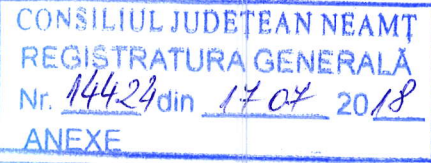 CONSILIUL JUDEȚEAN NEAMȚ
REGISTRATURA GENERALĂ
Nr. 14424 din 17 07 2018
ANEXE